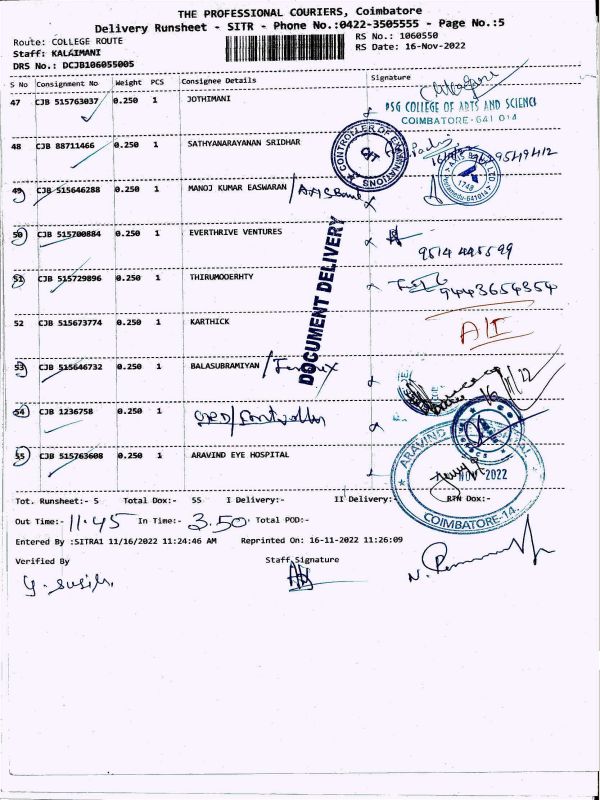 THE PROFESSIONAL COURIERS, Coimbatore
Delivery Runsheet - SITR - Phone No.:0422-3505555 - Page No.:5
Route: COLLEGE ROUTE RS No.: 1060550
Staff: KALAIMANI RS Date: 16-Nov-2022
DRS No.: DCJB106055005
S No Consignment No Weight PCS Consignee Details Signature
47 CJB 515763037 0.250 1 JOTHIMANI
PSG COLLEGE OF ARTS AND SCIENCE
COIMBATORE-641 014
48 CJB 88711466 0.250 1 SATHYANARAYANAN SRIDHAR
CONTROLLER OF EXAMINATIONS
CIT
49 CJB 515646288 0.250 1 MANOJ KUMAR EASWARAN / AXIS Bank
AXIS BANK LTD
1748
641014
50 CJB 515700884 0.250 1 EVERTHRIVE VENTURES
9514 445599
51 CJB 515729896 0.250 1 THIRUMOOERHTY
9443654354
DOCUMENT DELIVERY
52 CJB 515673774 0.250 1 KARTHICK
A/I
53 CJB 515646732 0.250 1 BALASUBRAMIYAN /
16/11/22
54 CJB 1236758 0.250 1
55 CJB 515763608 0.250 1 ARAVIND EYE HOSPITAL
ARAVIND HOSPITAL
NOV 2022
COIMBATORE-14.
Tot. Runsheet:- 5 Total Dox:- 55 I Delivery:- II Delivery:- RTN Dox:-
Out Time:- 11.45 In Time:- 3.50 Total POD:-
Entered By :SITRA1 11/16/2022 11:24:46 AM Reprinted On: 16-11-2022 11:26:09
Verified By Staff Signature